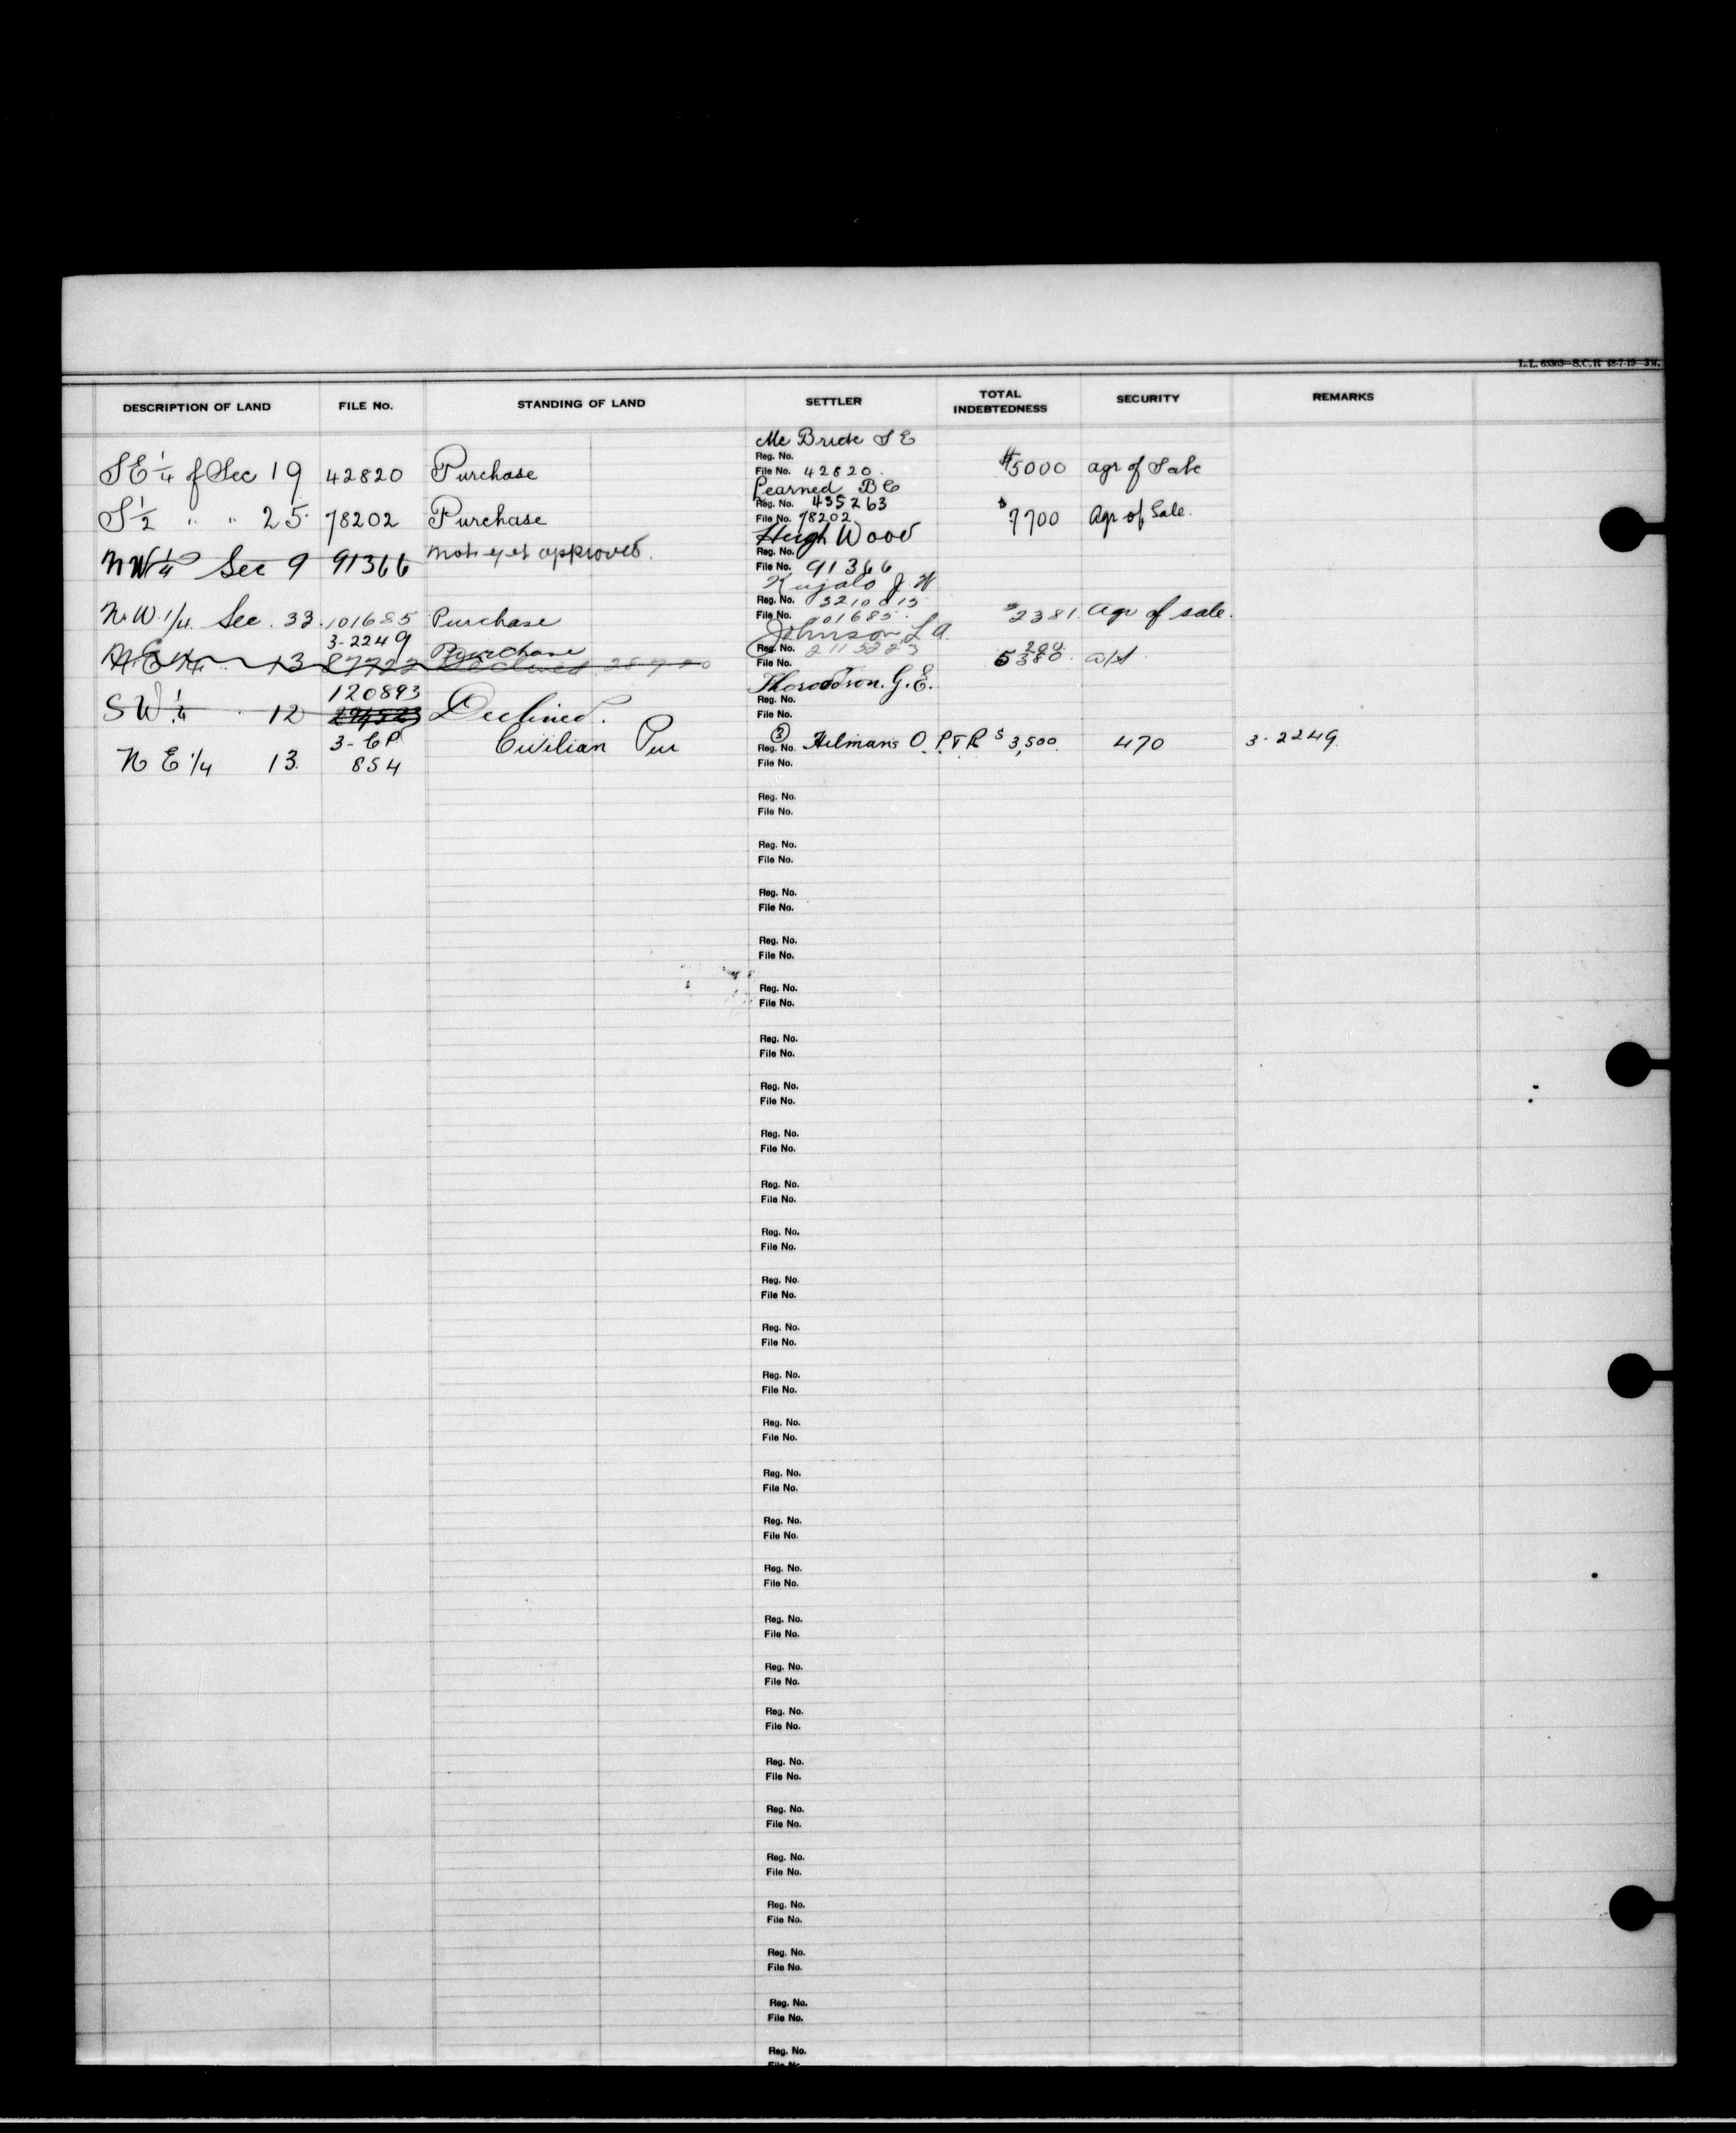 L.L. 65305—S.C.R. 18-7-19—3M.
DESCRIPTION OF LAND FILE No. STANDING OF LAND SETTLER TOTAL INDEBTEDNESS SECURITY REMARKS
Mc Bride S E
Reg. No.
SE 1/4 of Sec 19 42820 Purchase File No. 42820. $5000 agr of Sale
Pearned B C
Reg. No. 435263
S 1/2 " " 25 78202 Purchase File No. 78202 $7700 Agr of Sale.
Hugh Wood
not yet approved. Reg. No.
NW 1/4 Sec 9 91366 File No. 91366
Kujalo J. W
Reg. No. 3210813
N.W. 1/4 Sec. 33. 101685 Purchase File No. 101685. $2381. agr of sale.
3-2249 Johnson, L A
Purchase Reg. No. 2113223 200
N.E. 1/4 " 13 87722 Declined File No. 5380. a/s
120893 Thorodson. G. E.
Reg. No.
SW 1/4 " 12 Declined. File No.
3-CP Civilian Pur (3) Reg. No. Hilmans O. P.T.R $3,500. 470 3-2249
N E 1/4 13. 854 File No.
Reg. No.
File No.
Reg. No.
File No.
Reg. No.
File No.
Reg. No.
File No.
Reg. No.
File No.
Reg. No.
File No.
Reg. No.
File No.
Reg. No.
File No.
Reg. No.
File No.
Reg. No.
File No.
Reg. No.
File No.
Reg. No.
File No.
Reg. No.
File No.
Reg. No.
File No.
Reg. No.
File No.
Reg. No.
File No.
Reg. No.
File No.
Reg. No.
File No.
Reg. No.
File No.
Reg. No.
File No.
Reg. No.
File No.
Reg. No.
File No.
Reg. No.
File No.
Reg. No.
File No.
Reg. No.
File No.
Reg. No.
File No.
Reg. No.
File No.